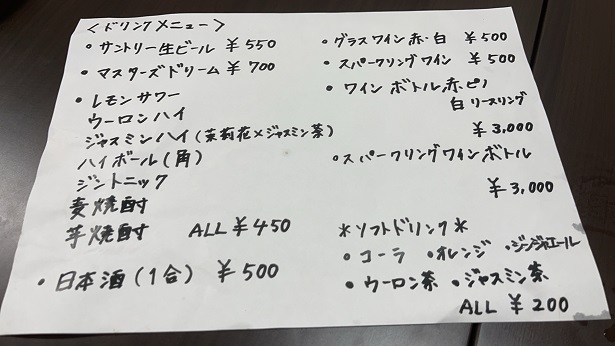 ＜ドリンクメニュー＞
・サントリー生ビール ¥550
・マスターズドリーム ¥700
・レモンサワー
ウーロンハイ
ジャスミンハイ(茉莉花×ジャスミン茶)
ハイボール(角)
ジントニック
麦焼酎
芋焼酎 ALL ¥450
・日本酒(1合) ¥500
・グラスワイン赤・白 ¥500
・スパークリングワイン ¥500
・ワインボトル赤ピノ
白リースリング
¥3,000
・スパークリングワインボトル
¥3,000
＊ソフトドリンク＊
・コーラ ・オレンジ ・ジンジャエール
・ウーロン茶 ・ジャスミン茶
ALL ¥200